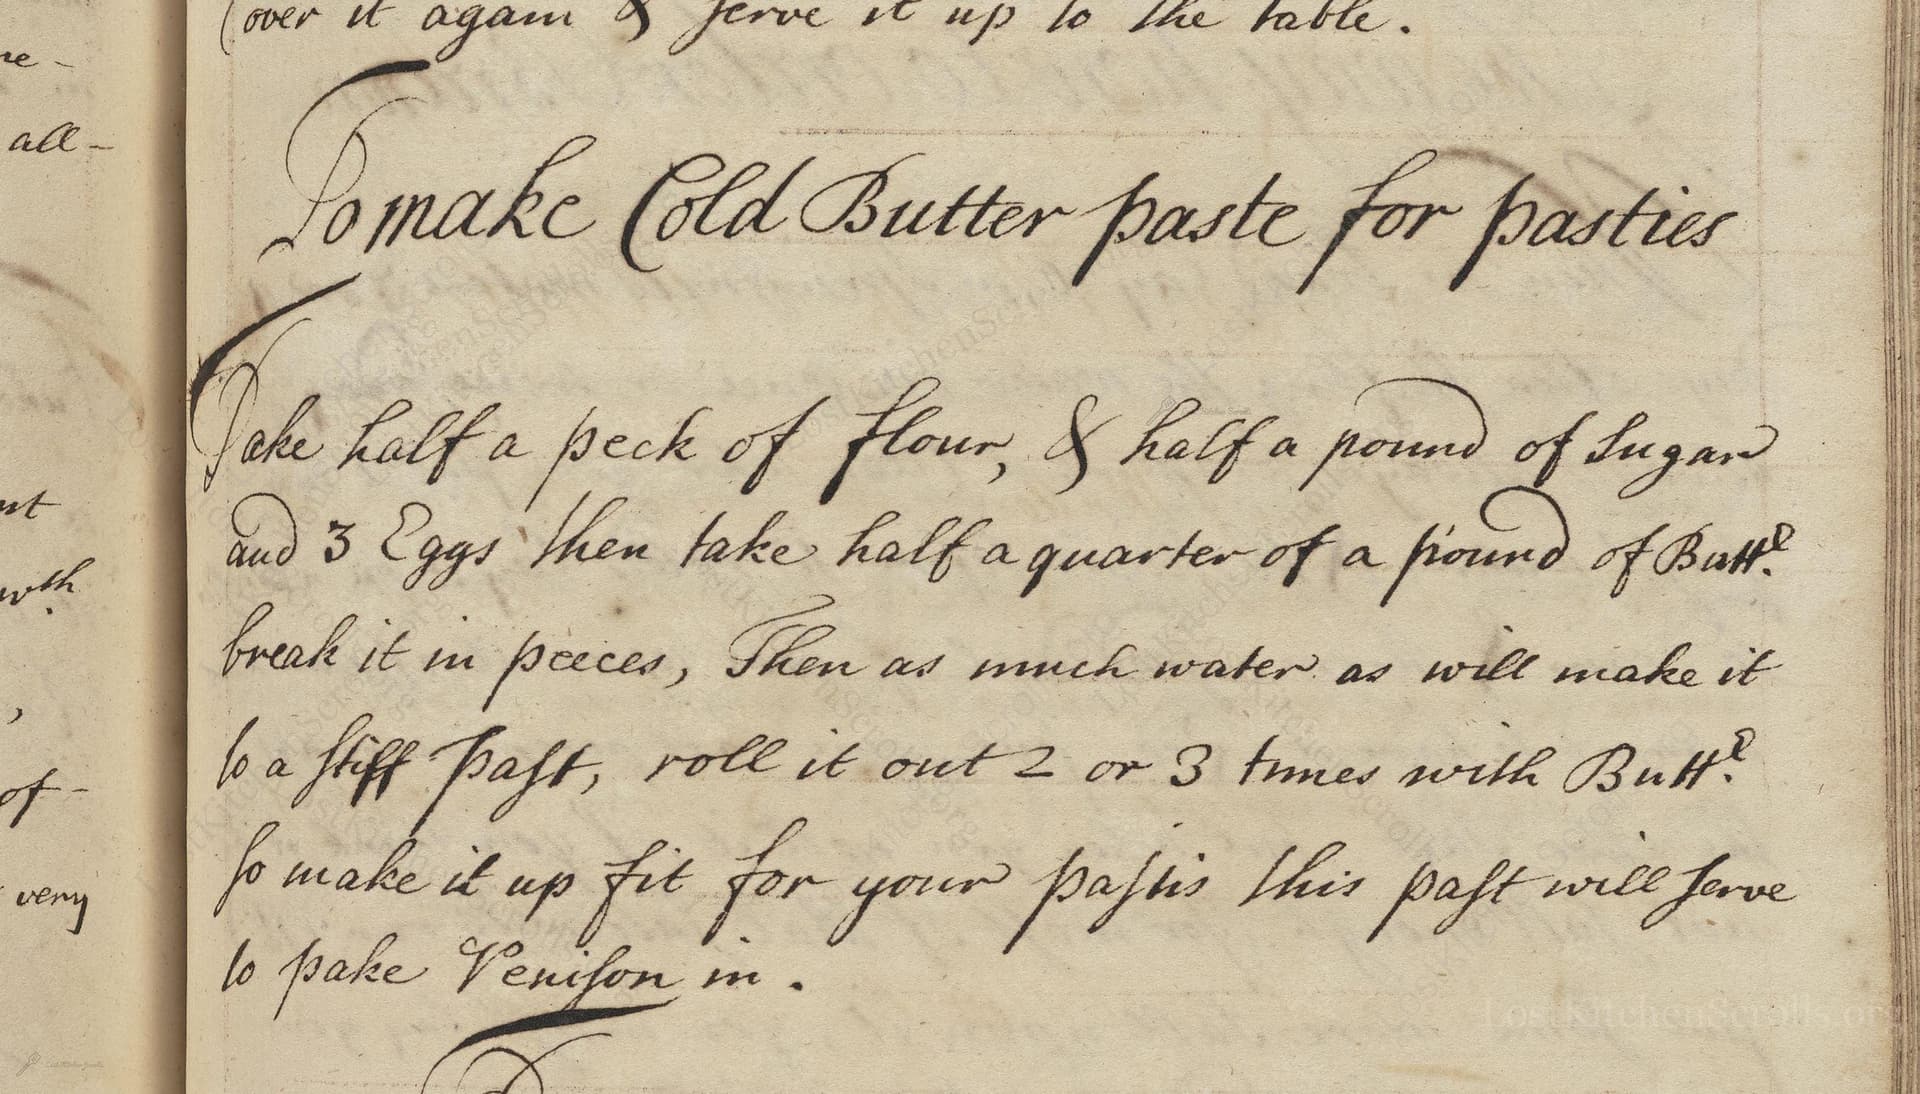 ne-
all-
nt
wth.
,
of-
very
Cover it again & serve it up to the table.
To make Cold Butter paste for pasties
Take half a peck of flour, & half a pound of Sugar
and 3 Eggs then take half a quarter of a pound of Buttr.
break it in peeces, Then as much water as will make it
to a stiff past, roll it out 2 or 3 times with Buttr.
so make it up fit for your pastis this past will serve
to pake Venison in.
LostKitchenScrolls.org